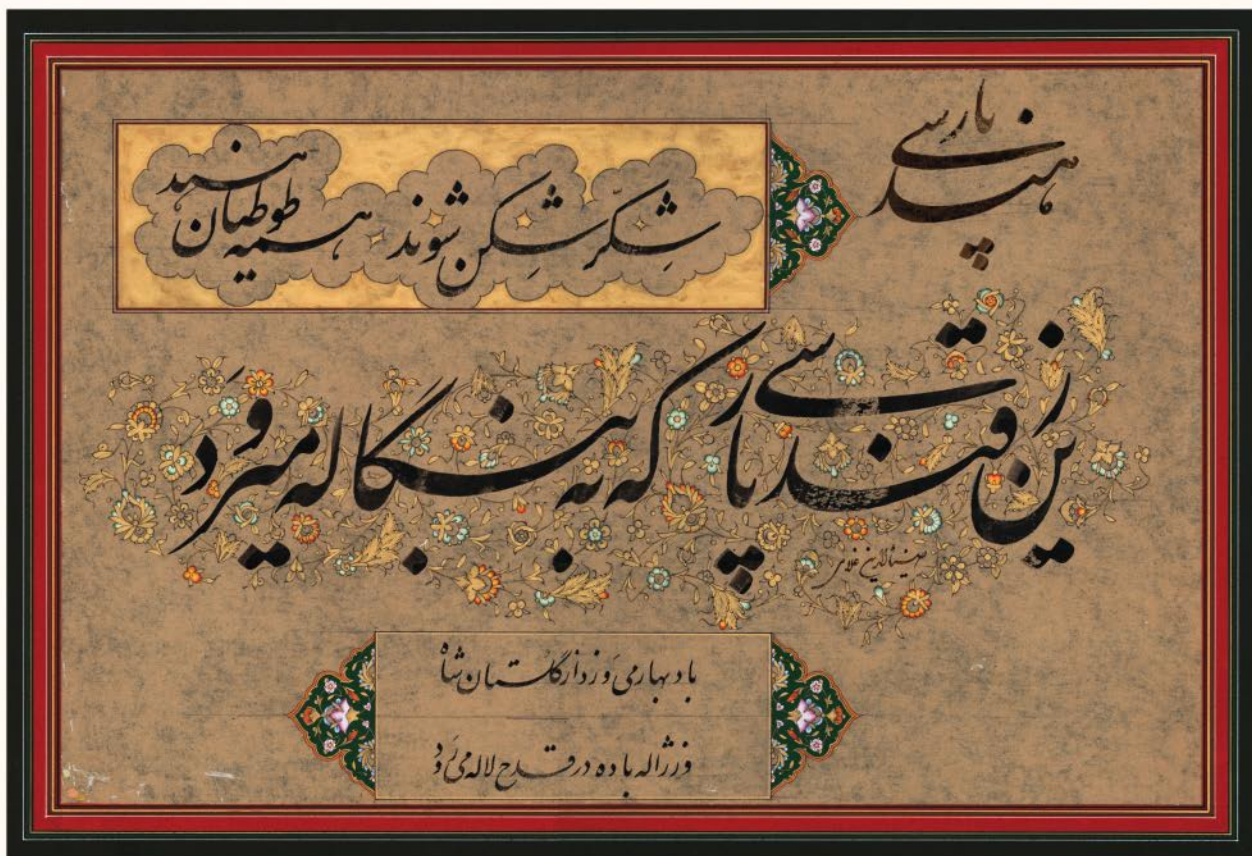 هند پارسی
شِکّر شِکن شوند همه طوطیان هند
زین قند پارسی که به بنگاله میرَود
باد بهار می وَزد از گلستان شاه
وز ژاله باده در قدح لاله می رَود